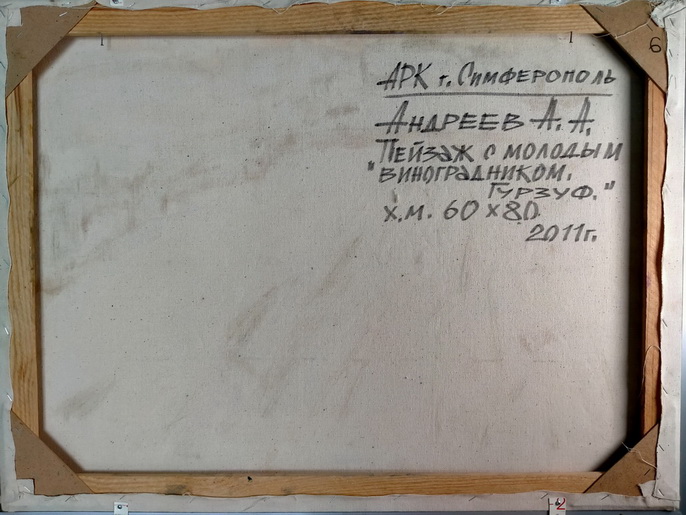 6
АРК г. Симферополь
Андреев А. А.
Пейзаж с молодым
"виноградником.
Гурзуф."
х.м. 60 х 80
2011г.